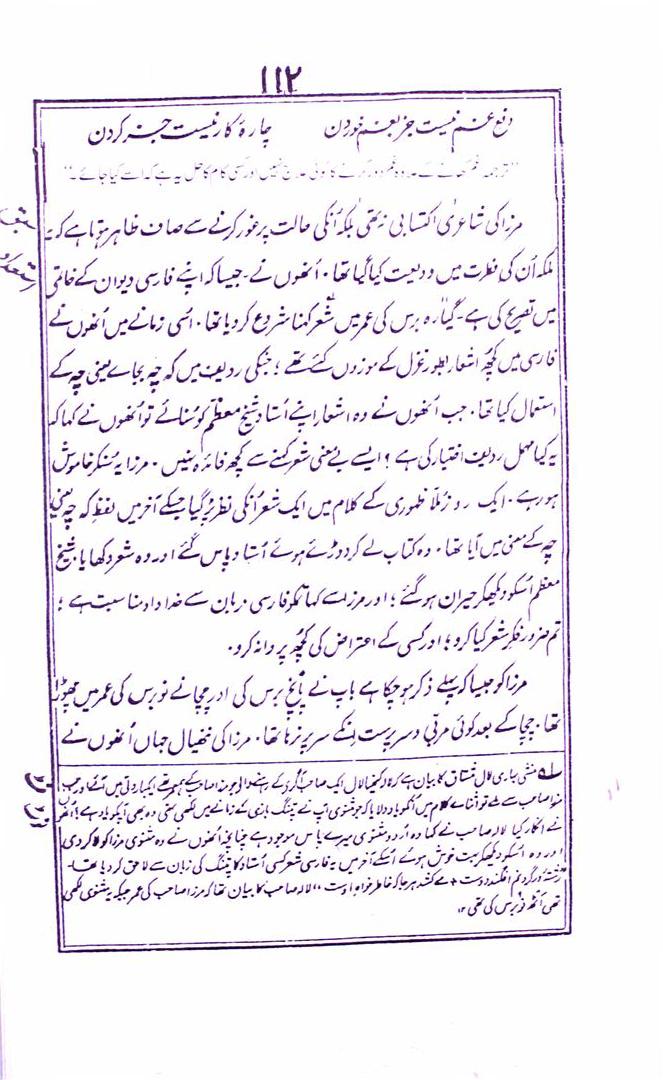 ۱۱۲
دفع غم نیست جز بغم خوردن چارۂ کار نیست جز کردن
مرزا کی شاعری اکتسابی نہ تھی بلکہ اُنکی حالت پر غور کرنے سے صاف ظاہر ہوتا ہے کہ یہ
ملکہ اُن کی فطرت میں ودیعت کیا گیا تھا۔ اُنھوں نے۔ جیسا کہ اپنے فارسی دیوان کے خاتمے
میں تصریح کی ہے۔ گیارہ برس کی عمر میں شعر کہنا شروع کر دیا تھا۔ اُسی زمانے میں اُنھوں نے
فارسی میں کچھ اشعار بطور غزل کے موزوں کئے تھے؛ جنکی ردیف میں کہ چہ بجاے یعنی چہ کے
استعمال کیا تھا۔ جب اُنھوں نے وہ اشعار اپنے اُستاد شیخ معظم کو سُنائے تو اُنھوں نے کہا کہ
یہ کیا مہمل ردیف اختیار کی ہے؟ ایسے بے معنی شعر کہنے سے کچھ فائدہ نہیں۔ مرزا یہ سُنکر خاموش
ہو رہے۔ ایک روز مُلّا ظہوری کے کلام میں ایک شعر اُنکی نظر پڑ گیا جسکے آخر میں لفظ کہ چہ یعنی
چہ کے معنی میں آیا تھا۔ وہ کتاب لے کر دوڑے ہوئے اُستاد پاس گئے اور وہ شعر دکھایا۔ شیخ
معظم اُسکو دیکھکر حیران ہو گئے؛ اور مرزا سے کہا تمکو فارسی زبان سے خداداد مناسبت ہے؛
تم ضرور فکرِ شعر کیا کرو؛ اور کسی کے اعتراض کی کچھ پروا نہ کرو۔
مرزا کو جیسا کہ پہلے ذکر ہو چکا ہے باپ نے پانچ برس کی اور چچا نے نو برس کی عمر میں چھوڑا
تھا۔ چچا کے بعد کوئی مربّی و سرپرست اِنکے سر پر نہ رہا تھا۔ مرزا کی ننھیال جہاں اُنھوں نے
لہ منشی بہاری لال مشتاق کا بیان ہے کہ لالہ کنھیا لال ایک صاحب آگرے کے رہنے والے جو مرزا صاحب کے ہم عمر تھے ایکبار دلّی میں آئے اور جب
مرزا صاحب سے ملے تو اثنائے کلام میں اُنکو یاد دلایا کہ جو مثنوی آپ نے پتنگ بازی کے زمانے میں لکھی تھی وہ بھی آپکو یاد ہے؟ اُنھوں
نے انکار کیا لالہ صاحب نے کہا وہ اُردو مثنوی میرے پاس موجود ہے چنانچہ اُنھوں نے وہ مثنوی مرزا کو لا کر دی
اور وہ اُسکو دیکھکر بہت خوش ہوئے اُسکے آخر میں یہ فارسی شعر کسی اُستاد کا پتنگ کی زبان سے لاحق کر دیا تھا۔
رشتۂ در گردنم افگندہ دوست ٭ مے کشد ہر جا کہ خاطر خواہ اوست ،، لالہ صاحب کا بیان تھا کہ مرزا صاحب کی عمر جبکہ یہ مثنوی لکھی
تھی آٹھ نو برس کی تھی ۱۲